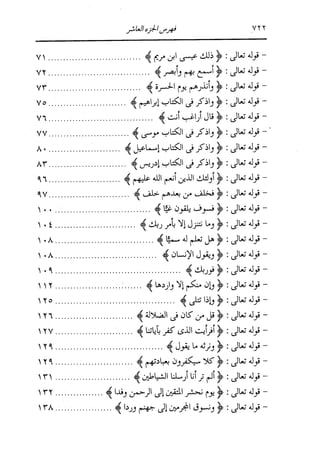 ٧٢٢ فهرس الجزء العاشر
- قوله تعالى : ﴿ ذلك عيسى ابن مريم ﴾ ............................... ٧١
- قوله تعالى : ﴿ أسمع بهم وأبصر ﴾ ............................... ٧٢
- قوله تعالى : ﴿ وأنذرهم يوم الحسرة ﴾ ............................... ٧٣
- قوله تعالى : ﴿ واذكر فى الكتاب إبراهيم ﴾ ........................... ٧٥
- قوله تعالى : ﴿ قال أراغب أنت ﴾ ............................... ٧٦
- قوله تعالى : ﴿ واذكر فى الكتاب موسى ﴾ ........................... ٧٧
- قوله تعالى : ﴿ واذكر فى الكتاب إسماعيل ﴾ ........................ ٨٠
- قوله تعالى : ﴿ واذكر فى الكتاب إدريس ﴾ .......................... ٨٣
- قوله تعالى : ﴿ أولئك الذين أنعم الله عليهم ﴾ ........................ ٩٦
- قوله تعالى : ﴿ فخلف من بعدهم خلف ﴾ ........................... ٩٧
- قوله تعالى : ﴿ فسوف يلقون غيًّا ﴾ ............................... ١٠٠
- قوله تعالى : ﴿ وما نتنزل إلا بأمر ربك ﴾ ........................... ١٠٤
- قوله تعالى : ﴿ هل تعلم له سميًّا ﴾ ............................... ١٠٨
- قوله تعالى : ﴿ ويقول الإنسان ﴾ ............................... ١٠٨
- قوله تعالى : ﴿ فوربك ﴾ ............................... ١٠٩
- قوله تعالى : ﴿ وإن منكم إلا واردها ﴾ ............................ ١١٢
- قوله تعالى : ﴿ وإذا تتلى ﴾ ............................... ١٢٥
- قوله تعالى : ﴿ قل من كان فى الضلالة ﴾ ........................... ١٢٦
- قوله تعالى : ﴿ أفرأيت الذى كفر بآياتنا ﴾ ........................... ١٢٧
- قوله تعالى : ﴿ ونرثه ما يقول ﴾ ............................... ١٢٩
- قوله تعالى : ﴿ كلا سيكفرون بعبادتهم ﴾ ........................... ١٢٩
- قوله تعالى : ﴿ ألم تر أنا أرسلنا الشياطين ﴾ ........................ ١٣١
- قوله تعالى : ﴿ يوم نحشر المتقين إلى الرحمن وفدا ﴾ ................ ١٣٢
- قوله تعالى : ﴿ ونسوق المجرمين إلى جهنم وردا ﴾ .................. ١٣٨